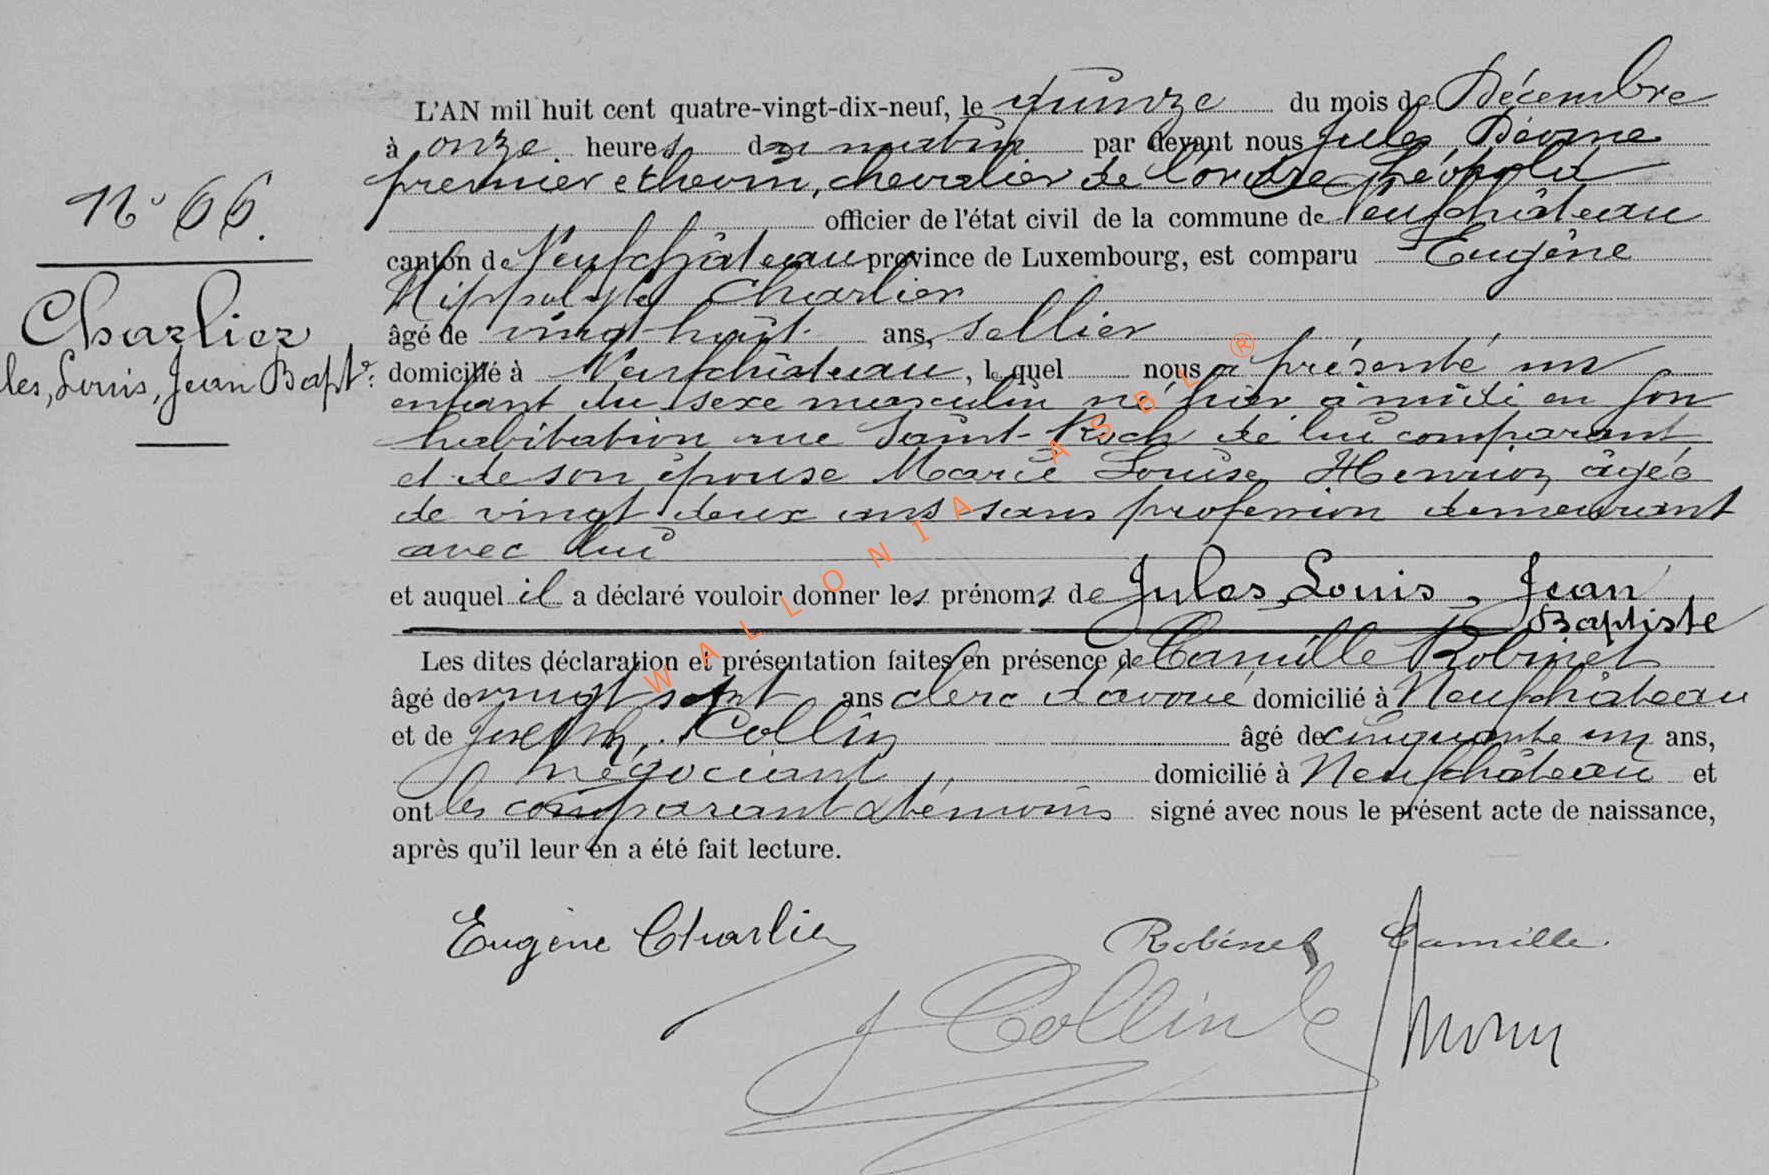 L'AN mil huit cent quatre-vingt-dix-neuf, le quinze du mois de Décembre
à onze heures du matin par devant nous Jules
premier échevin, chevalier de l'ordre Léopold
officier de l'état civil de la commune de Neufchâteau
canton de Neufchâteau province de Luxembourg, est comparu Eugène
Hippolyte Charlier
âgé de vingt huit ans, sellier
domicilié à Neufchâteau, lequel nous a présenté un
enfant du sexe masculin né hier à midi en son
habitation rue Saint-Roch de lui comparant
et de son épouse Marie Louise Henrion âgée
de vingt deux ans sans profession demeurant
avec lui
et auquel il a déclaré vouloir donner les prénoms de Jules, Louis, Jean
Baptiste
Les dites déclaration et présentation faites en présence de Camille Robinet
âgé de vingt sept ans clerc d'avoué domicilié à Neufchâteau
et de Joseph Collin âgé de cinquante un ans,
négociant, domicilié à Neufchâteau et
ont les comparant & témoins signé avec nous le présent acte de naissance,
après qu'il leur en a été fait lecture.
N° 66.
Charlier
les, Louis, Jean Bapte
Eugène Charlier
Robinet Camille.
J Collin
WALLONIA ASBL ®